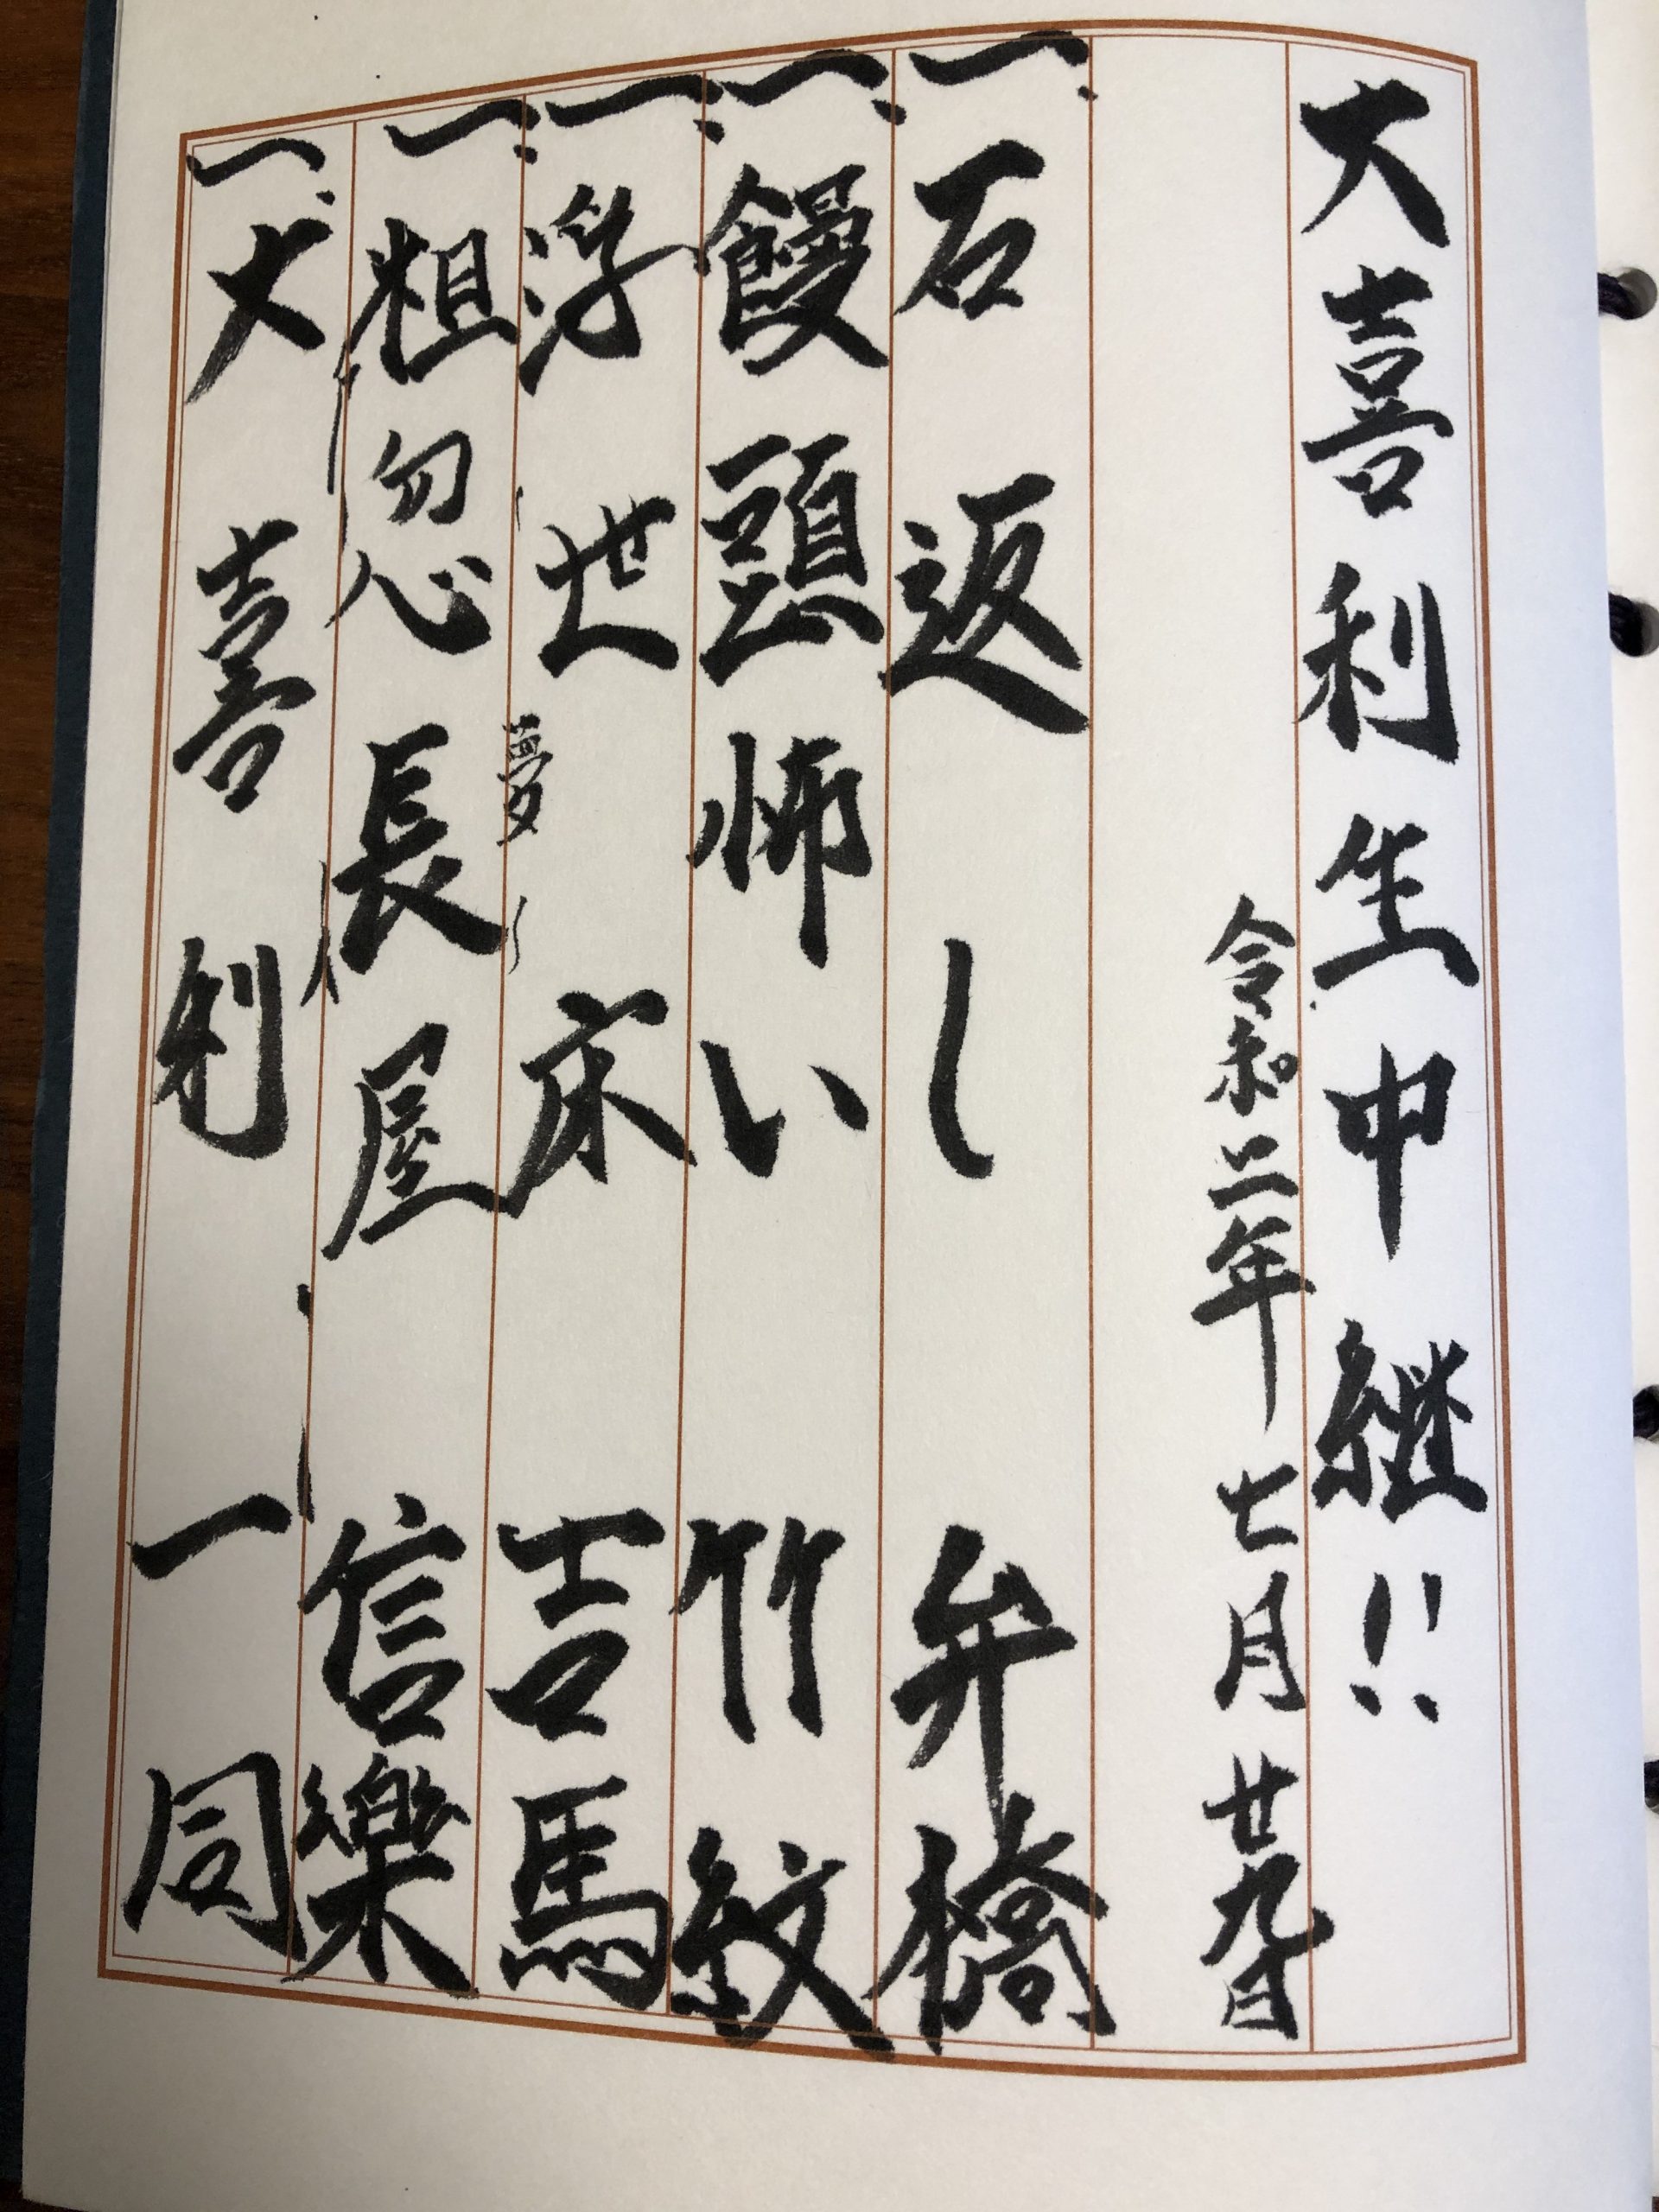 大喜利生中継!!
令和二年七月廿九日
一、石返し 弁橋
一、饅頭怖い 竹紋
一、浮世床 夢 吉馬
一、粗忽長屋 信樂
一、大喜利 一同